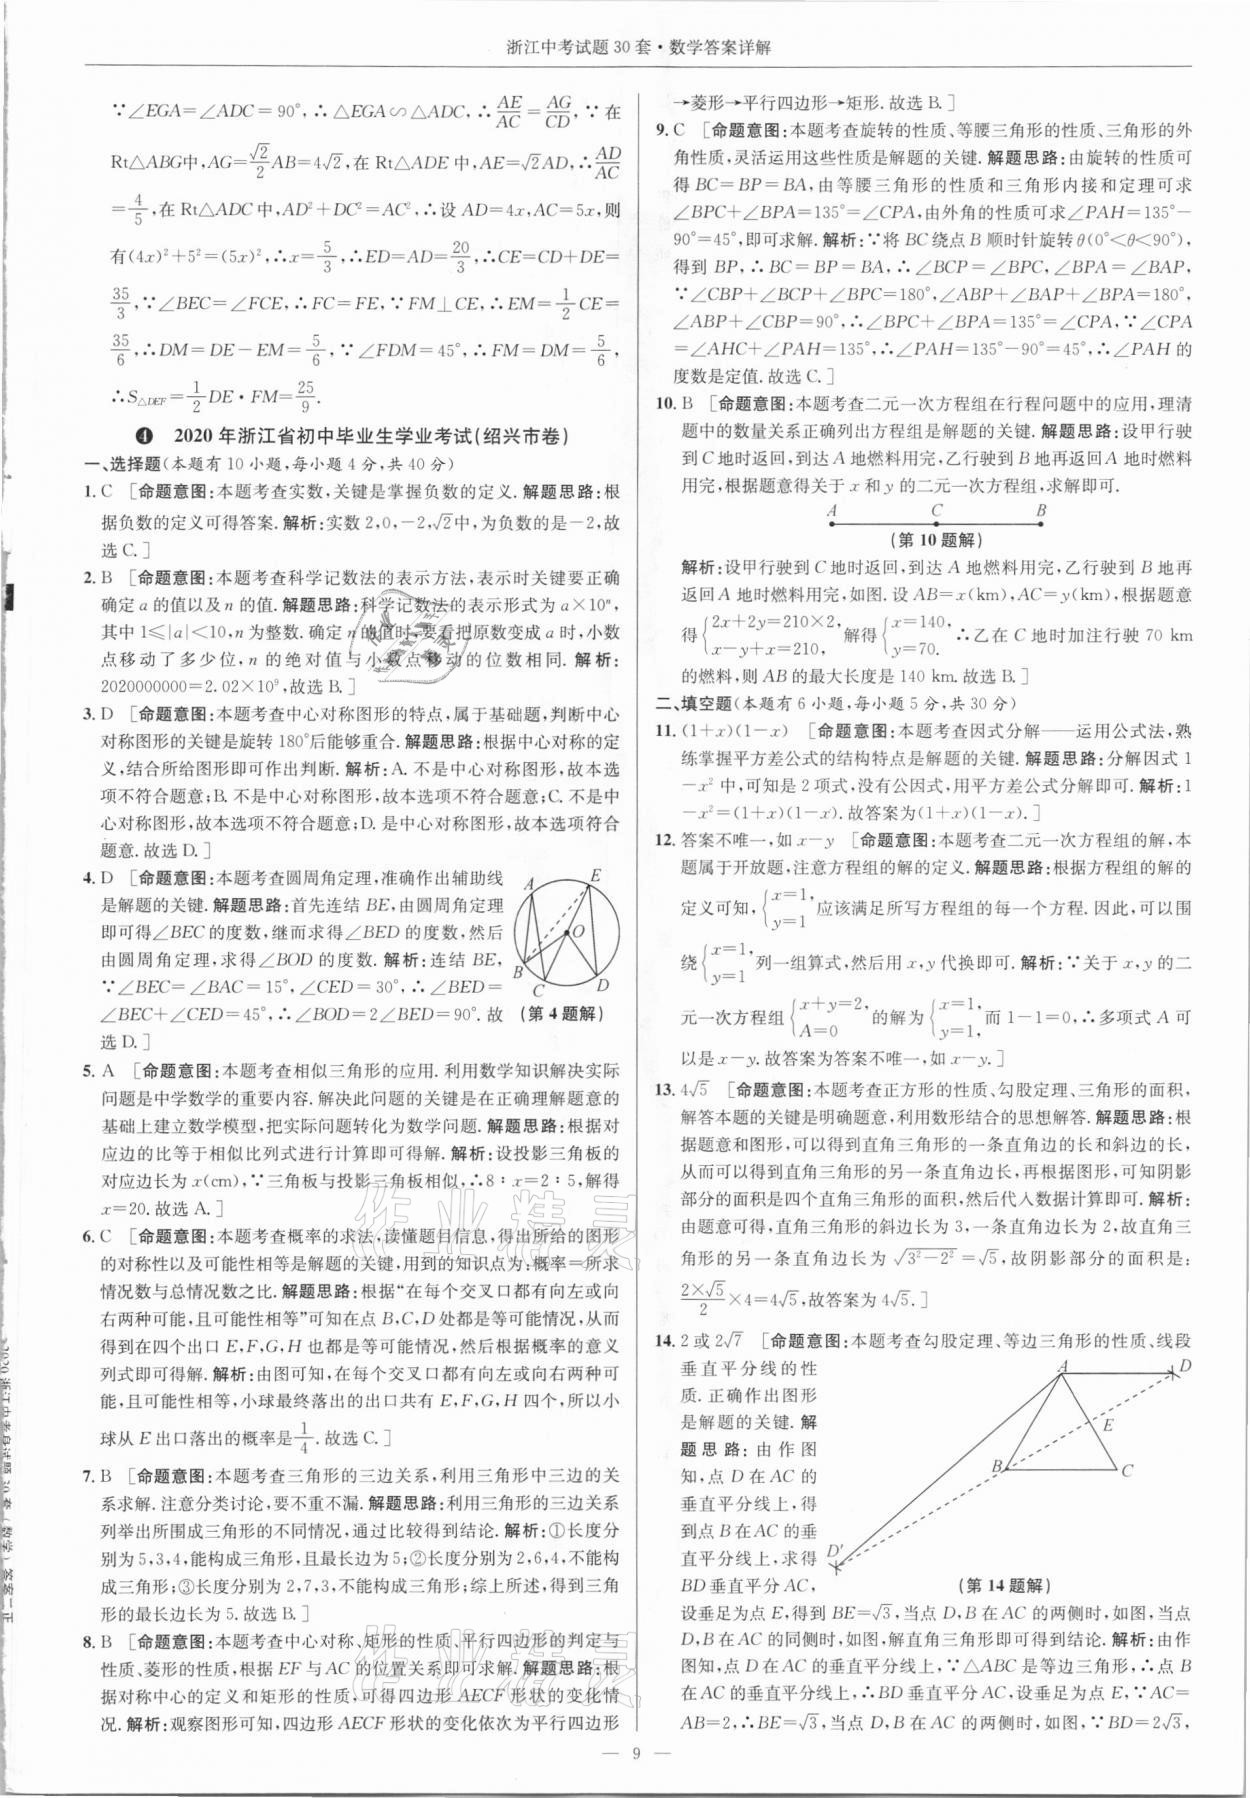 浙江中考试题30套·数学答案详解
∵∠EGA=∠ADC=90°,∴△EGA∽△ADC,∴AE/AC=AG/CD,∵在
Rt△ABG中,AG=√2/2AB=4√2,在Rt△ADE中,AE=√2AD,∴AD/AC
=4/5,在Rt△ADC中,AD²+DC²=AC²,∴设AD=4x,AC=5x,则
有(4x)²+5²=(5x)²,∴x=5/3,∴ED=AD=20/3,∴CE=CD+DE=
35/3,∵∠BEC=∠FCE,∴FC=FE,∵FM⊥CE,∴EM=1/2CE=
35/6,∴DM=DE-EM=5/6,∵∠FDM=45°,∴FM=DM=5/6,
∴S△DEF=1/2DE·FM=25/9.
❹ 2020年浙江省初中毕业生学业考试(绍兴市卷)
一、选择题(本题有10小题,每小题4分,共40分)
1. C [命题意图:本题考查实数,关键是掌握负数的定义.解题思路:根
据负数的定义可得答案.解析:实数2,0,-2,√2中,为负数的是-2,故
选C.]
2. B [命题意图:本题考查科学记数法的表示方法,表示时关键要正确
确定a的值以及n的值.解题思路:科学记数法的表示形式为a×10ⁿ,
其中1≤|a|<10,n为整数.确定n的值时,要看把原数变成a时,小数
点移动了多少位,n的绝对值与小数点移动的位数相同.解析:
2020000000=2.02×10⁹,故选B.]
3. D [命题意图:本题考查中心对称图形的特点,属于基础题,判断中心
对称图形的关键是旋转180°后能够重合.解题思路:根据中心对称的定
义,结合所给图形即可作出判断.解析:A.不是中心对称图形,故本选
项不符合题意;B.不是中心对称图形,故本选项不符合题意;C.不是中
心对称图形,故本选项不符合题意;D.是中心对称图形,故本选项符合
题意.故选D.]
4. D [命题意图:本题考查圆周角定理,准确作出辅助线
是解题的关键.解题思路:首先连结BE,由圆周角定理
即可得∠BEC的度数,继而求得∠BED的度数,然后
由圆周角定理,求得∠BOD的度数.解析:连结BE,
∵∠BEC=∠BAC=15°,∠CED=30°,∴∠BED=
∠BEC+∠CED=45°,∴∠BOD=2∠BED=90°.故
选D.]
A
E
O
B
C
D
(第4题解)
5. A [命题意图:本题考查相似三角形的应用.利用数学知识解决实际
问题是中学数学的重要内容.解决此问题的关键是在正确理解题意的
基础上建立数学模型,把实际问题转化为数学问题.解题思路:根据对
应边的比等于相似比列式进行计算即可得解.解析:设投影三角板的
对应边长为x(cm),∵三角板与投影三角板相似,∴8∶x=2∶5,解得
x=20.故选A.]
6. C [命题意图:本题考查概率的求法,读懂题目信息,得出所给的图形
的对称性以及可能性相等是解题的关键,用到的知识点为:概率=所求
情况数与总情况数之比.解题思路:根据“在每个交叉口都有向左或向
右两种可能,且可能性相等”可知在点B,C,D处都是等可能情况,从而
得到在四个出口E,F,G,H也都是等可能情况,然后根据概率的意义
列式即可得解.解析:由图可知,在每个交叉口都有向左或向右两种可
能,且可能性相等,小球最终落出的出口共有E,F,G,H四个,所以小
球从E出口落出的概率是1/4.故选C.]
7. B [命题意图:本题考查三角形的三边关系,利用三角形中三边的关
系求解.注意分类讨论,要不重不漏.解题思路:利用三角形的三边关系
列举出所围成三角形的不同情况,通过比较得到结论.解析:①长度分
别为5,3,4,能构成三角形,且最长边为5;②长度分别为2,6,4,不能构
成三角形;③长度分别为2,7,3,不能构成三角形;综上所述,得到三角
形的最长边长为5.故选B.]
8. B [命题意图:本题考查中心对称、矩形的性质、平行四边形的判定与
性质、菱形的性质,根据EF与AC的位置关系即可求解.解题思路:根
据对称中心的定义和矩形的性质,可得四边形AECF形状的变化情
况.解析:观察图形可知,四边形AECF形状的变化依次为平行四边形
→菱形→平行四边形→矩形.故选B.]
9. C [命题意图:本题考查旋转的性质、等腰三角形的性质、三角形的外
角性质,灵活运用这些性质是解题的关键.解题思路:由旋转的性质可
得BC=BP=BA,由等腰三角形的性质和三角形内接和定理可求
∠BPC+∠BPA=135°=∠CPA,由外角的性质可求∠PAH=135°-
90°=45°,即可求解.解析:∵将BC绕点B顺时针旋转θ(0°<θ<90°),
得到BP,∴BC=BP=BA,∴∠BCP=∠BPC,∠BPA=∠BAP,
∵∠CBP+∠BCP+∠BPC=180°,∠ABP+∠BAP+∠BPA=180°,
∠ABP+∠CBP=90°,∴∠BPC+∠BPA=135°=∠CPA,∵∠CPA
=∠AHC+∠PAH=135°,∴∠PAH=135°-90°=45°,∴∠PAH的
度数是定值.故选C.]
10. B [命题意图:本题考查二元一次方程组在行程问题中的应用,理清
题中的数量关系正确列出方程组是解题的关键.解题思路:设甲行驶
到C地时返回,到达A地燃料用完,乙行驶到B地再返回A地时燃料
用完,根据题意得关于x和y的二元一次方程组,求解即可.
A C B
(第10题解)
解析:设甲行驶到C地时返回,到达A地燃料用完,乙行驶到B地再
返回A地时燃料用完,如图.设AB=x(km),AC=y(km),根据题意
得{2x+2y=210×2, x-y+x=210, 解得{x=140, y=70. ∴乙在C地时加注行驶70 km
的燃料,则AB的最大长度是140 km.故选B.]
二、填空题(本题有6小题,每小题5分,共30分)
11. (1+x)(1-x) [命题意图:本题考查因式分解——运用公式法,熟
练掌握平方差公式的结构特点是解题的关键.解题思路:分解因式1
-x²中,可知是2项式,没有公因式,用平方差公式分解即可.解析:1
-x²=(1+x)(1-x).故答案为(1+x)(1-x).]
12. 答案不唯一,如x-y [命题意图:本题考查二元一次方程组的解,本
题属于开放题,注意方程组的解的定义.解题思路:根据方程组的解的
定义可知,{x=1, y=1 应该满足所写方程组的每一个方程.因此,可以围
绕{x=1, y=1 列一组算式,然后用x,y代换即可.解析:∵关于x,y的二
元一次方程组{x+y=2, A=0 的解为{x=1, y=1, 而1-1=0,∴多项式A可
以是x-y.故答案为答案不唯一,如x-y.]
13. 4√5 [命题意图:本题考查正方形的性质、勾股定理、三角形的面积,
解答本题的关键是明确题意,利用数形结合的思想解答.解题思路:根
据题意和图形,可以得到直角三角形的一条直角边的长和斜边的长,
从而可以得到直角三角形的另一条直角边长,再根据图形,可知阴影
部分的面积是四个直角三角形的面积,然后代入数据计算即可.解析:
由题意可得,直角三角形的斜边长为3,一条直角边长为2,故直角三
角形的另一条直角边长为√(3²-2²)=√5,故阴影部分的面积是:
2×√5/2×4=4√5,故答案为4√5.]
14. 2或2√7 [命题意图:本题考查勾股定理、等边三角形的性质、线段
垂直平分线的性
质.正确作出图形
是解题的关键.解
题思路:由作图
知,点D在AC的
垂直平分线上,得
到点B在AC的垂
直平分线上,求得
BD垂直平分AC,
A
D
E
B
C
D′
(第14题解)
设垂足为点E,得到BE=√3,当点D,B在AC的两侧时,如图,当点
D,B在AC的同侧时,如图,解直角三角形即可得到结论.解析:由作
图知,点D在AC的垂直平分线上,∵△ABC是等边三角形,∴点B
在AC的垂直平分线上,∴BD垂直平分AC,设垂足为点E,∵AC=
AB=2,∴BE=√3,当点D,B在AC的两侧时,如图,∵BD=2√3,
— 9 —
作业精灵
作业精灵